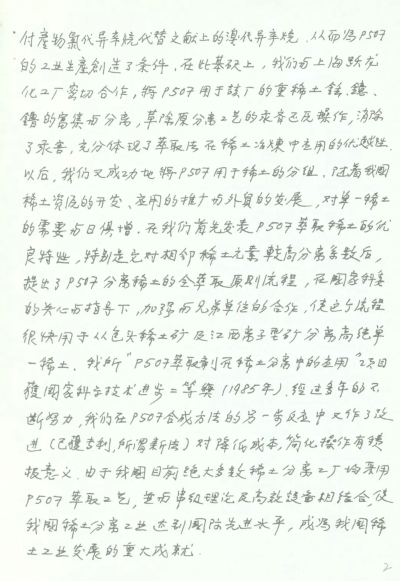 付產物氯代异辛烷代替文献上的溴代异辛烷. 从而為P507
的工业生產創造了条件. 在此基础上, 我们与上海跃龙
化工厂密切合作, 將P507用于該厂的重稀土铥、鐿、
鑥的富集与分离, 草除原分离工艺的汞齐已瓦操作, 消除
了汞害, 充分体现了萃取法在稀土冶煉中应用的优越性.
以后, 我们又成功地將P507用于稀土的分组. 随着我國
稀土資源的开发、应用的推广与外貿的发展, 对单一稀土
的需要与日俱增. 在我们首先发表P507萃取稀土的优
良特性, 特别是它对相邻稀土元素較高分离系数后,
提出了P507分离稀土的全萃取原則流程, 在國家科委
的关心与指导下, 加强与兄弟单位的合作, 使这个流程
很快用于从包头稀土矿及江西离子型矿分离高純单
一稀土. 我所"P507萃取剂在稀土分离中的应用"項目
獲國家科学技术進步二等獎(1985年). 經过多年的不
断努力, 我们在P507合成方法的另一步反应中又作了改
進(已獲专利, 所謂新法)对降低成本, 简化操作有積
极意义. 由于我國目前绝大多数稀土分离工厂均采用
P507萃取工艺, 并与串级理论及高效設备相结合, 使
我國稀土分离工业达到國际先進水平, 成為我國稀
土工业发展的重大成就.
2